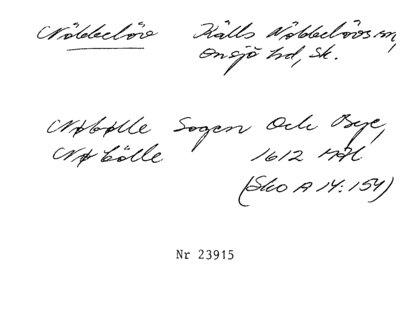 Nöbbelöv Källs Nöbbelövs sn,
Onsjö hd, Sk.
Nøbølle Sogen Och Bye,
Nøbölle 1612
(Sko A 14:154)
Nr 23915